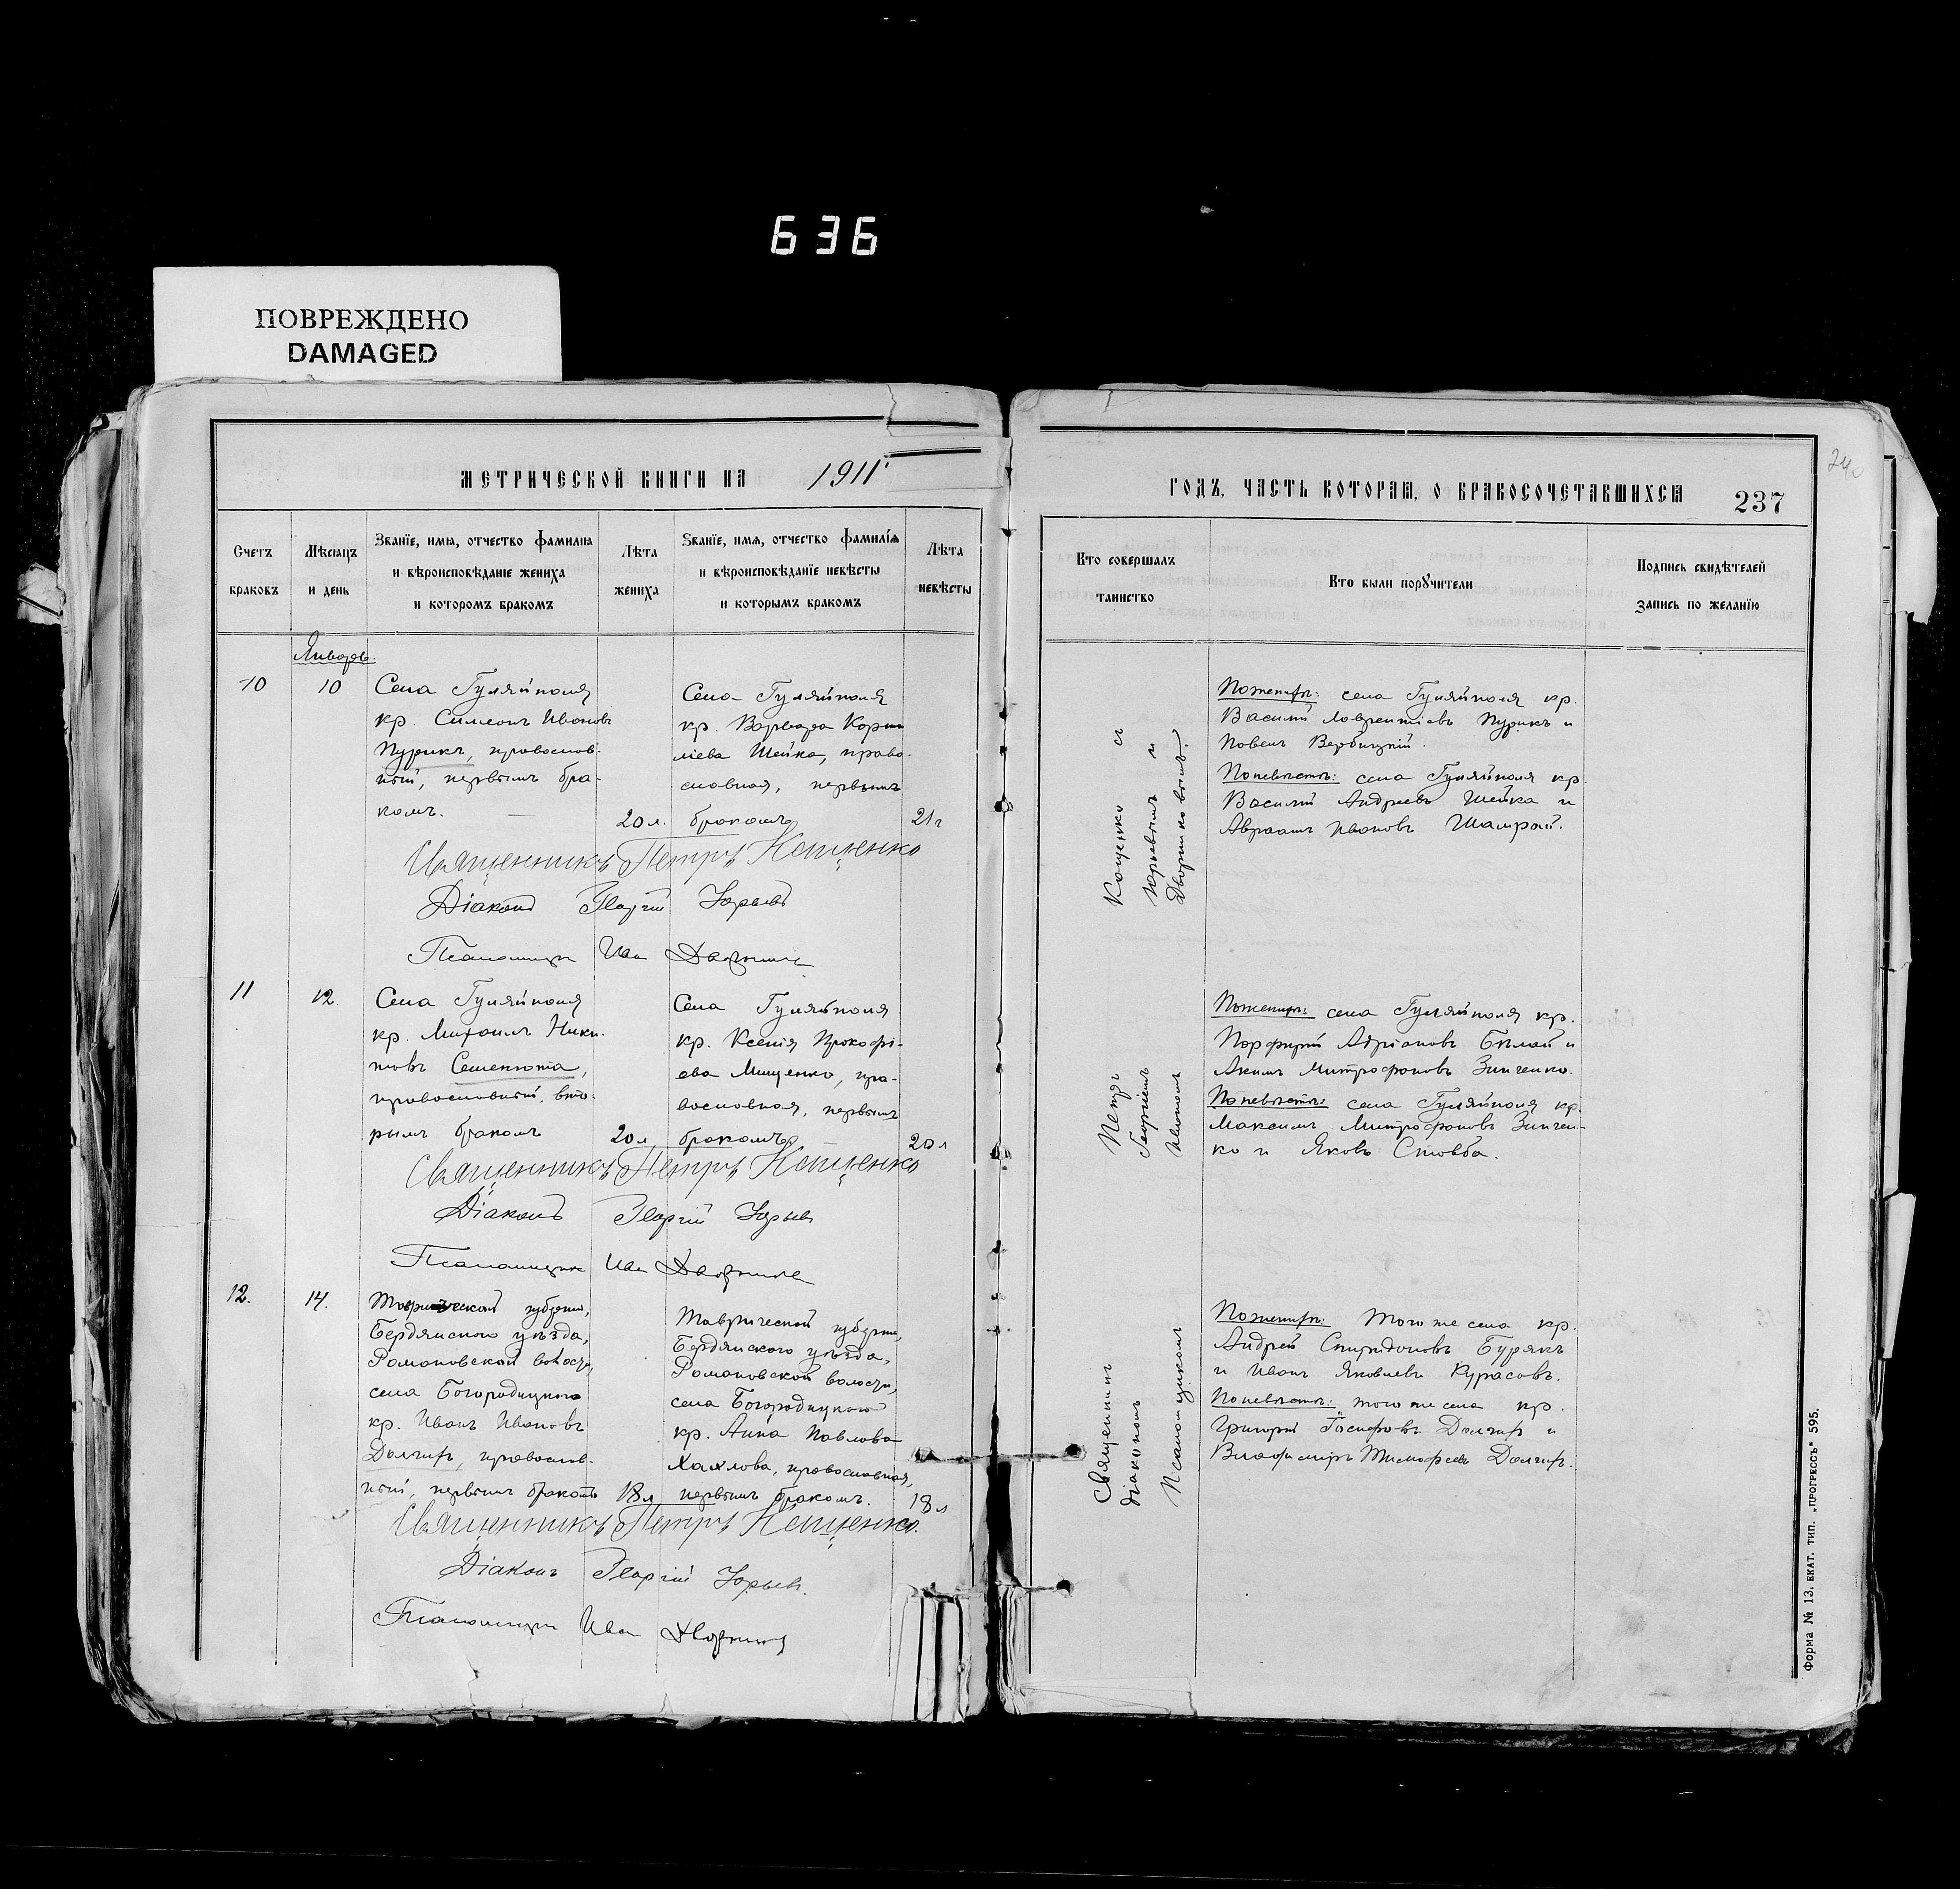 636
ПОВРЕЖДЕНО
DAMAGED
МЕТРИЧЕСКОЙ КНИГИ НА 1911
Счетъ браковъ
Мѣсяцъ и день
Званїе, имя, отчество фамилія
и вѣроисповѣданіе жениха
и которомъ бракомъ
Лѣта жениха
Званїе, имя, отчество фамилїя
и вѣроисповѣданїе невѣсты
и которымъ бракомъ
Лѣта невѣсты
Январь.
10
10
Села Гуляйполя
кр. Симеонъ Ивановъ
Пурикъ, православ-
ный, первымъ бра-
комъ.
20 л.
Села Гуляйполя
кр. Варвара Корни
лiева Шейка, право-
славная, первымъ
бракомъ
21 г
Священникъ Петръ Кощенко
Дiаконъ Георгiй Юрьевъ
Псаломщикъ Иван
11
12.
Села Гуляйполя
кр. Михаилъ Ники-
товъ Семенюта,
православный, вто-
рымъ бракомъ
20 л
Села Гуляйполя
кр. Ксенiя Прокофi-
ева Мищенко, пра-
вославная, первымъ
бракомъ
20 л
Священникъ Петръ Кощенко
Дiаконъ Георгiй Юрьевъ
Псаломщикъ Иван
12.
14.
Таврической губернiи,
Бердянскаго уѣзда,
Романовской волости,
села Богородицкаго
кр. Иванъ Ивановъ
Долгиръ, православ-
ный, первымъ бракомъ
18 л
Таврической губернiи,
Бердянскаго уѣзда,
Романовской волости,
села Богородицкаго
кр. Анна Павлова
Хахлова, православная,
первымъ бракомъ.
18 л
Священникъ Петръ Кощенко.
Дiаконъ Георгiй Юрьевъ.
Псаломщикъ Иван
240
ГОДЪ, ЧАСТЬ КОТОРАЯ, О БРАКОСОЧЕТАВШИХСЯ
237
Кто совершалъ таинство
Кто были порȢчители
Подпись свидѣтелей
запись по желанїю
Священникъ Петръ Кощенко съ
дiакономъ Георгiемъ Юрьевымъ и
Псаломщикомъ Iваномъ Дворниковымъ.
По женихѣ: села Гуляйполя кр.
Василiй Лаврентiевъ Пурикъ и
Павелъ Вербицкiй.
По невѣстѣ: села Гуляйполя кр.
Василiй Андреевъ Шейка и
Авраамъ Ивановъ Шамрай.
По женихѣ: села Гуляйполя кр.
Порфирiй Адрiановъ Бѣлай и
Акимъ Митрофановъ Зинченко.
По невѣстѣ: села Гуляйполя кр.
Максимъ Митрофановъ Зинчен-
ко и Яковъ Стовба.
По женихѣ: того же села кр.
Андрей Спиридоновъ Бурякъ
и Иванъ Яковлевъ Курасовъ.
По невѣстѣ: того же села кр.
Григорiй Iосифовъ Долгиръ и
Владимiръ Тимофеевъ Долгиръ.
Форма № 13. ЕКАТ. ТИП. „ПРОГРЕССЪ" 595.